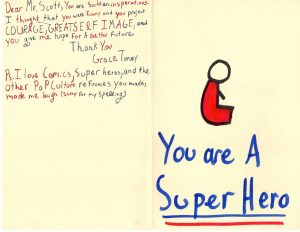 Dear Mr. Scott, You are such an inspiration.
I thought that you were Funny and you project
COURAGE, GREAT SELF IMAGE, and
you give me hope For A better Future.
Thank You
Grace Toney
P.S. I love Comics, Super heros, and the
other PoP Culture refrences you made,
made me laugh (sorry for my spelling)
You are A
Super Hero